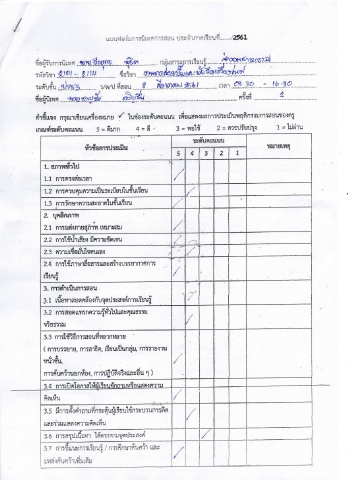 แบบฟอร์มการนิเทศการสอน ประจำภาคเรียนที่........./2561
ชื่อผู้รับการนิเทศ กลุ่มสาระการเรียนรู้
รหัสวิชา 2101 - 2114 ชื่อวิชา
ระดับชั้น ว/ด/ป ที่สอน 8 2561 เวลา 09.30 - 16.30
ชื่อผู้นิเทศ ครั้งที่ 2
คำชี้แจง กรุณาเขียนเครื่องหมาย ✓ ในช่องระดับคะแนน เพื่อแสดงผลการประเมินพฤติกรรมการสอนของครู
เกณฑ์ระดับคะแนน 5 = ดีมาก 4 = ดี 3 = พอใช้ 2 = ควรปรับปรุง 1 = ไม่ผ่าน
หัวข้อการประเมิน ระดับคะแนน หมายเหตุ
5 4 3 2 1
1. สภาพทั่วไป
1.1 การตรงต่อเวลา ✓
1.2 การควบคุมความเป็นระเบียบในชั้นเรียน ✓
1.3 การรักษาความสะอาดในชั้นเรียน ✓
2. บุคลิกภาพ
2.1 การแต่งกายสุภาพ เหมาะสม ✓
2.2 การใช้น้ำเสียง มีความชัดเจน ✓
2.3 ความเชื่อมั่นในตนเอง ✓
2.4 การใช้ภาษาสื่อสารและสร้างบรรยากาศการ
เรียนรู้ ✓
3. การดำเนินการสอน
3.1 เนื้อหาสอดคล้องกับจุดประสงค์การเรียนรู้ ✓
3.2 การสอดแทรกความรู้ทั่วไปและคุณธรรม
จริยธรรม ✓
3.3 การใช้วิธีการสอนที่หลากหลาย
( การบรรยาย, การสาธิต, เรียนเป็นกลุ่ม, การรายงาน
หน้าชั้น,
การค้นคว้านอกห้อง, การปฏิบัติจริงและอื่น ๆ ) ✓
3.4 การเปิดโอกาสให้ผู้เรียนซักถามหรือแสดงความ
คิดเห็น ✓
3.5 มีการตั้งคำถามที่กระตุ้นผู้เรียนใช้กระบวนการคิด
และร่วมแสดงความคิดเห็น ✓
3.6 การสรุปเนื้อหา ได้ตรงตามจุดประสงค์ ✓
3.7 การชี้แนะการเรียนรู้ / การศึกษาค้นคว้า และ
แหล่งค้นคว้าเพิ่มเติม ✓